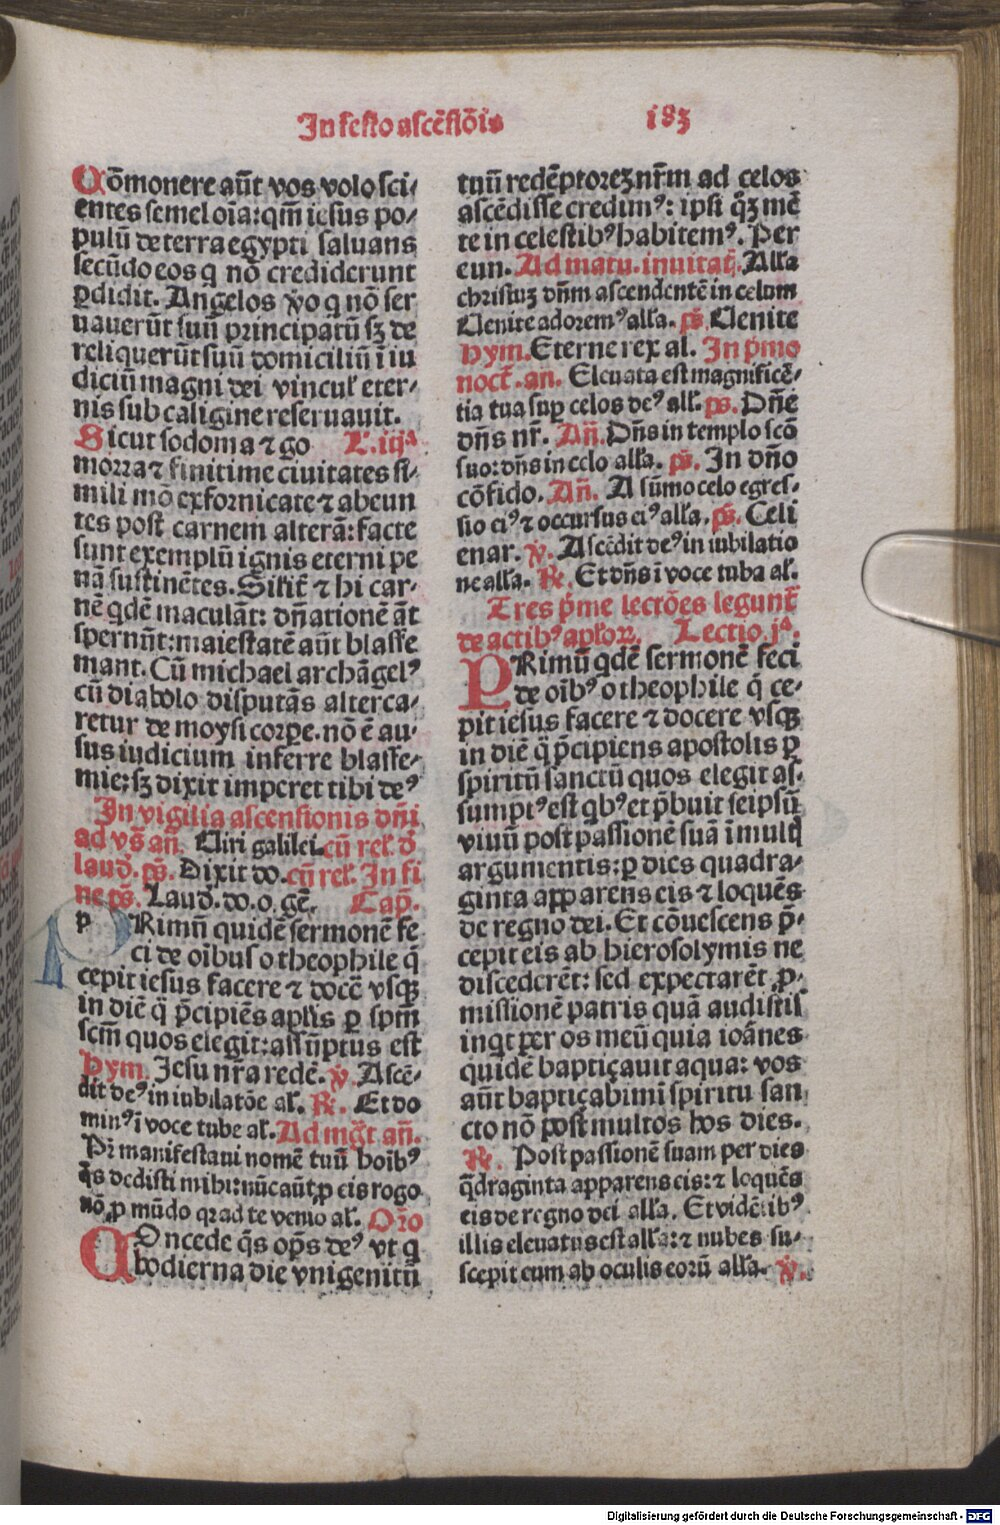 In festo ascēsiōis 183
Cōmonere aūt vos volo sci⸗
entes semel oīa: qm̄ iesus po⸗
pulū de terra egypti saluans
secūdo eos q nō crediderunt
ꝑdidit. Angelos ꝟo q nō ser
uauerūt suū principatū sꝫ de
reliquerūt suū domiciliū ī iu
diciū magni dei vincuł eter⸗
nis sub caligine reseruauit.
Sicut sodoma ⁊ go L. iijᵃ
morra ⁊ finitime ciuitates si⸗
mili mō exfornicate ⁊ abeun
tes post carnem alterā: facte
sunt exemplū ignis eterni pe
nā sustinētes. Silił ⁊ hi car⸗
nē qdē maculāt: dn̄ationē āt
spernūt: maiestatē aūt blasfe
mant. Cū michael archāgelꝰ
cū diabolo disputās alterca⸗
retur de moysi corpe. nō ē au⸗
sus iudicium inferre blasfe⸗
mie; sꝫ dixit imperet tibi deꝰ
In vigilia ascensionis dn̄i
ad vs̄ añ. Uiri galilei. cū rel. d̄
laud. ps̄. Dixit do. cū rel. In fi
ne ps̄. Laud. do. o. gē. Cap̄.
p Rimū quidē sermonē fe
ci de oībus o theophile q̄
cepit iesus facere ⁊ docē vsqꝫ
in diē q̄ p̄cipiēs apłis ꝑ spm̄
scm̄ quos elegit: assūptus est
Hym. Jesu nr̄a redē. ꝟ. Ascē⸗
dit deꝰ in iubilatōe ał. ℞. Et do
minꝰ ī voce tube ał. Ad mḡt añ.
Pr̄ manifestaui nomē tuū hoībꝰ
q̄s dedisti mihi: nūc aūt ꝓ eis rogo
nō ꝓ mūdo qꝛ ad te venio ał. Or̄o
COncede q̄s op̄s deꝰ vt q
hodierna die vnigenitū
tuū redēptoreꝫ nr̄m ad celos
ascēdisse credimꝰ: ipsi q̄ꝫ mē
te in celestibꝰ habitemꝰ. Per
eun. Ad matu. inuitat̄. Alła
christuꝫ dn̄m ascendentē in celum
Uenite adoremꝰ alła. ps̄. Uenite
Hym. Eterne rex al. In p̄mo
noct̄. an. Eleuata est magnificē⸗
tia tua suꝑ celos deꝰ ałł. ps̄. Dn̄e
dn̄s nr̄. Añ. Dn̄s in templo scō
suo: dn̄s in celo alła. ps̄. In dn̄o
cōfido. Añ. A sūmo celo egres⸗
sio eiꝰ ⁊ occursus eiꝰ alła. ps̄. Celi
enar. ꝟ. Ascēdit deꝰ in iubilatio
ne alła. ℞. Et dn̄s ī voce tuba ał.
Tres p̄me lectōes legunt̄
de actibꝰ apłoꝝ. Lectio. jᵃ.
PRimū qdē sermonē feci
de oībꝰ o theophile q̄ ce⸗
pit iesus facere ⁊ docere vsqꝫ
in diē q̄ p̄cipiens apostolis ꝑ
spiritū sanctū quos elegit as⸗
sumptꝰ est qbꝰ et p̄buit seipsū
viuū post passionē suā ī mult̄
argumentis: ꝑ dies quadra⸗
ginta apparens eis ⁊ loquēs
de regno dei. Et cōuescens p̄⸗
cepit eis ab hierosolymis ne
discederēt: sed expectarēt ꝓ⸗
missionē patris quā audistis
inqt per os meū quia ioānes
quidē bapticauit aqua: vos
aūt bapticabimī spiritu san
cto nō post multos hos dies.
℞. Post passionem suam per dies
q̄draginta apparens eis: ⁊ loquēs
eis de regno dei alła. Et vidētibꝰ
illis eleuatus est ałła: ⁊ nubes su⸗
scepit eum ab oculis eorū alła. ꝟ.
Digitalisierung gefördert durch die Deutsche Forschungsgemeinschaft - DFG